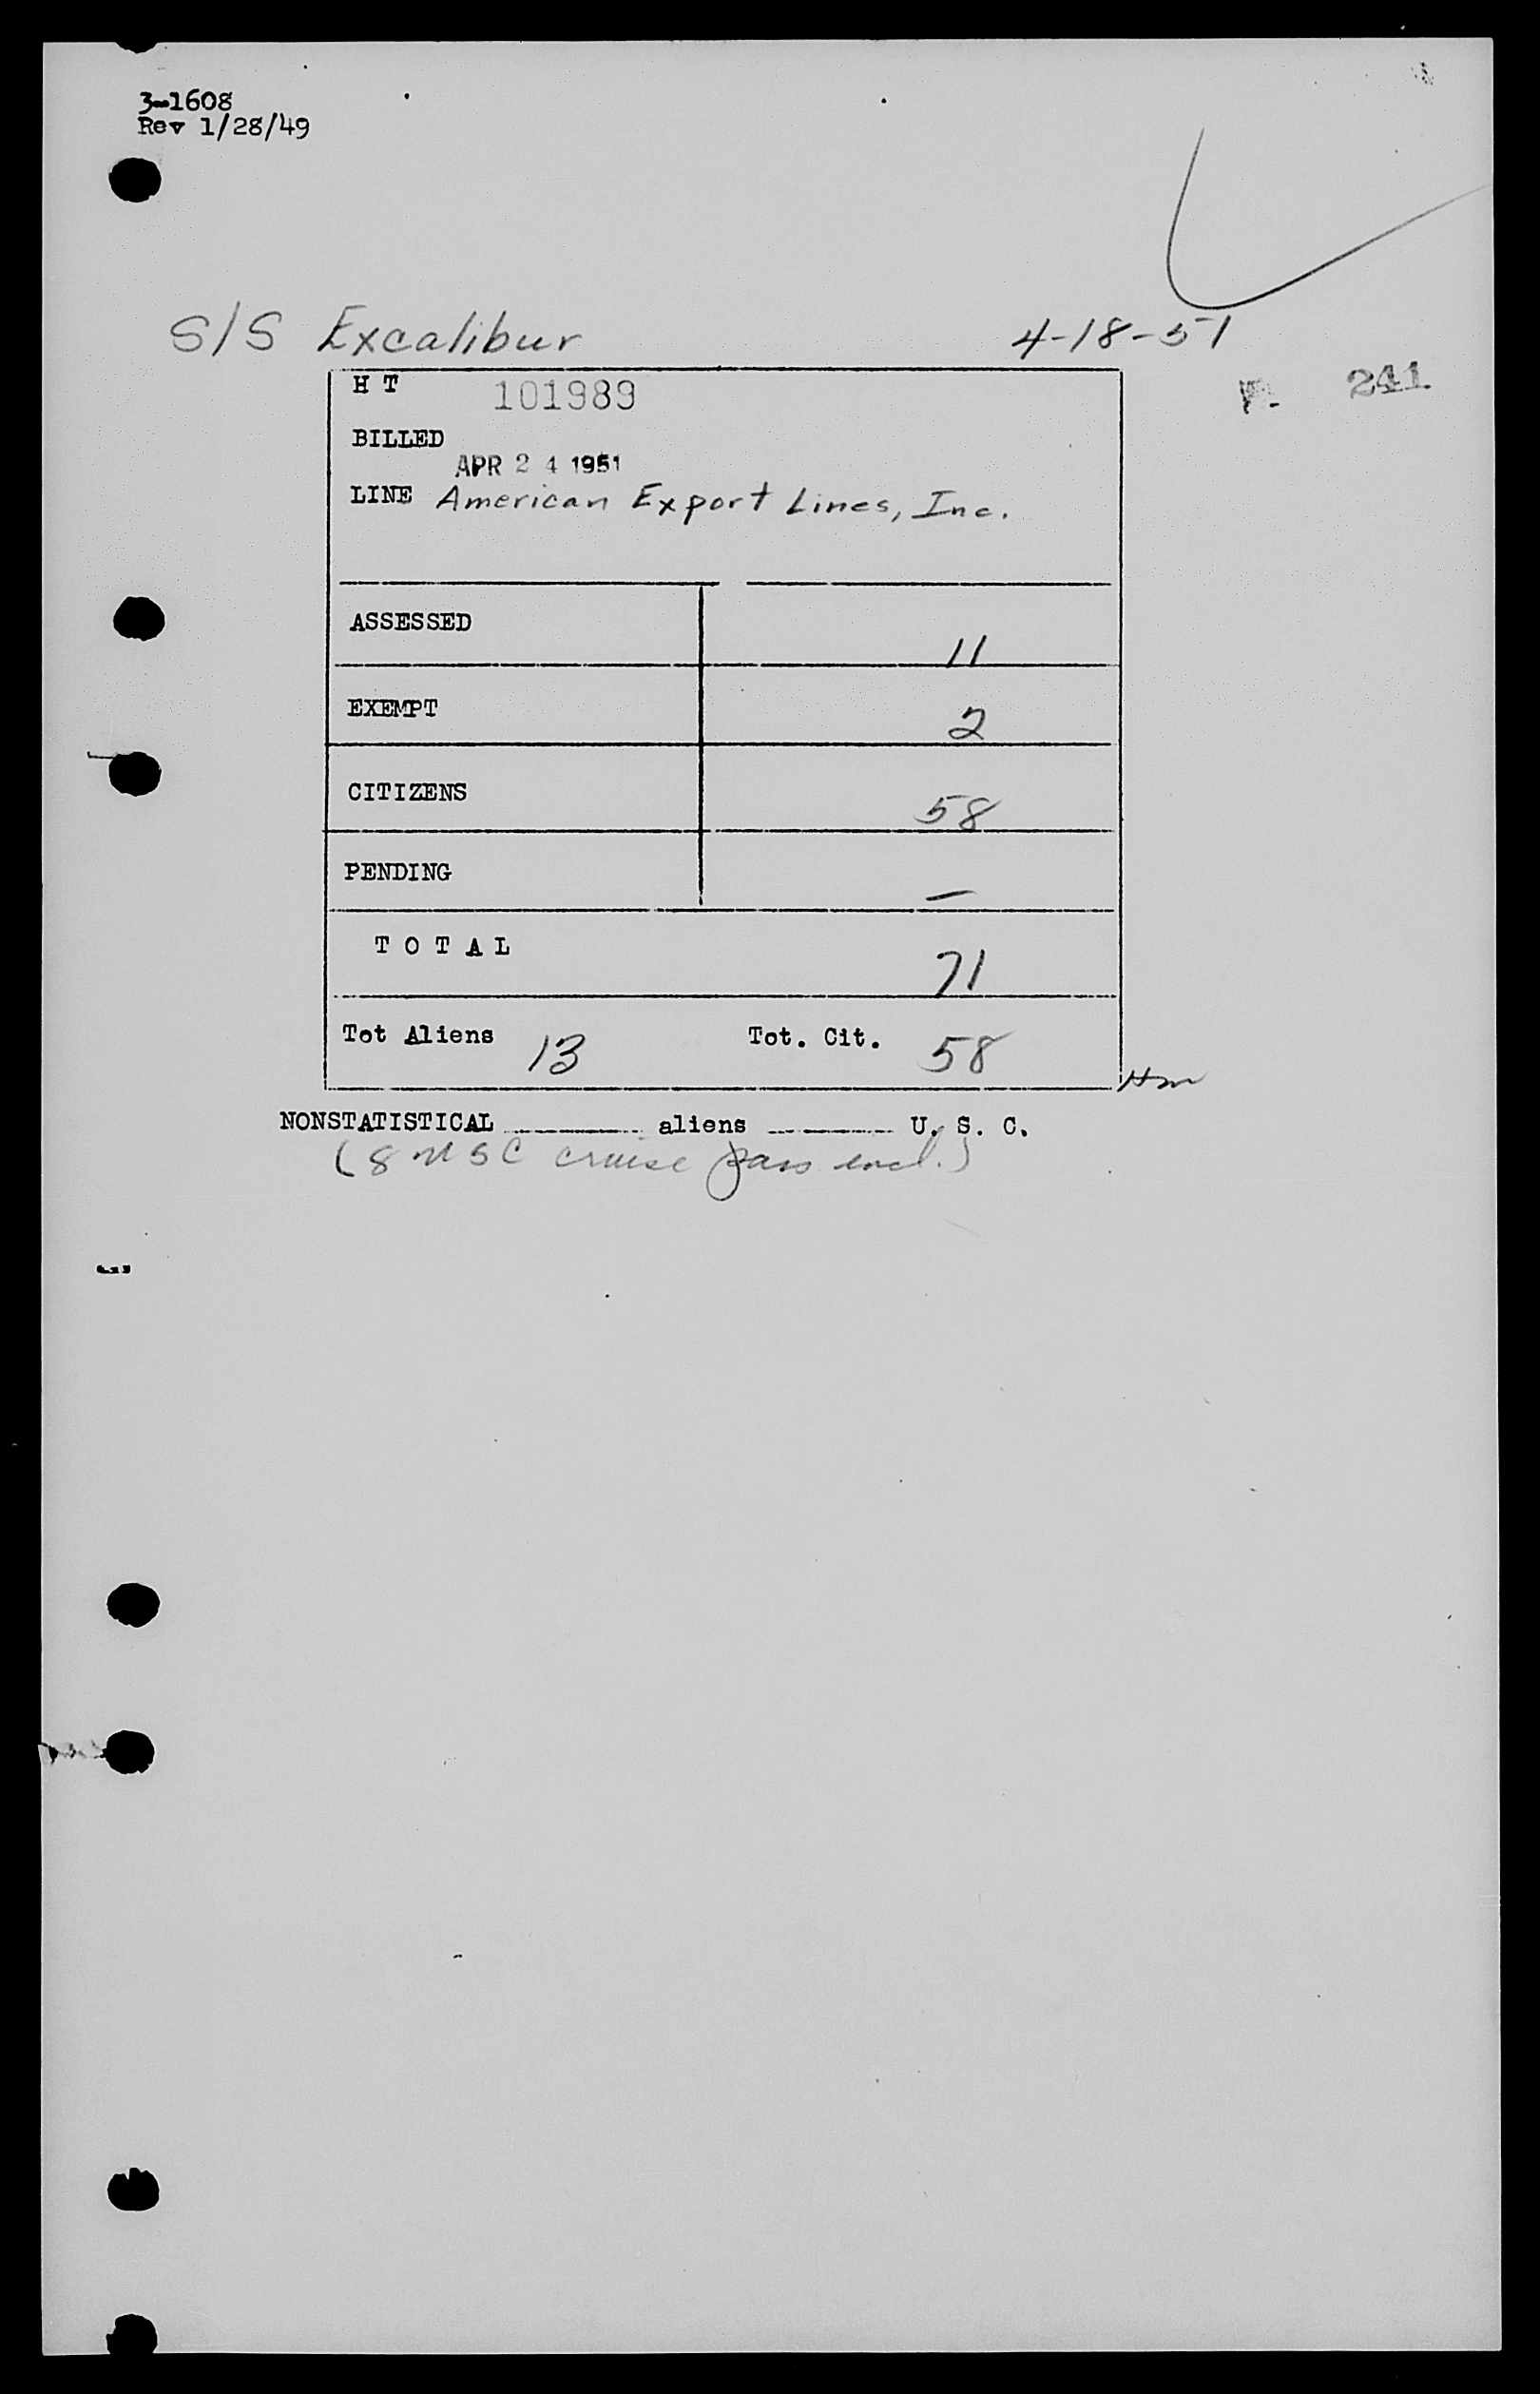 3-1608
Rev 1/28/49
S/S Excalibur 4-18-51
241
H T 101989
BILLED
APR 24 1951
LINE American Export Lines, Inc.
ASSESSED 11
EXEMPT 2
CITIZENS 58
PENDING —
T O T A L 71
Tot Aliens 13 Tot. Cit. 58
NONSTATISTICAL aliens U. S. C.
(8 USC cruise pass incl.)